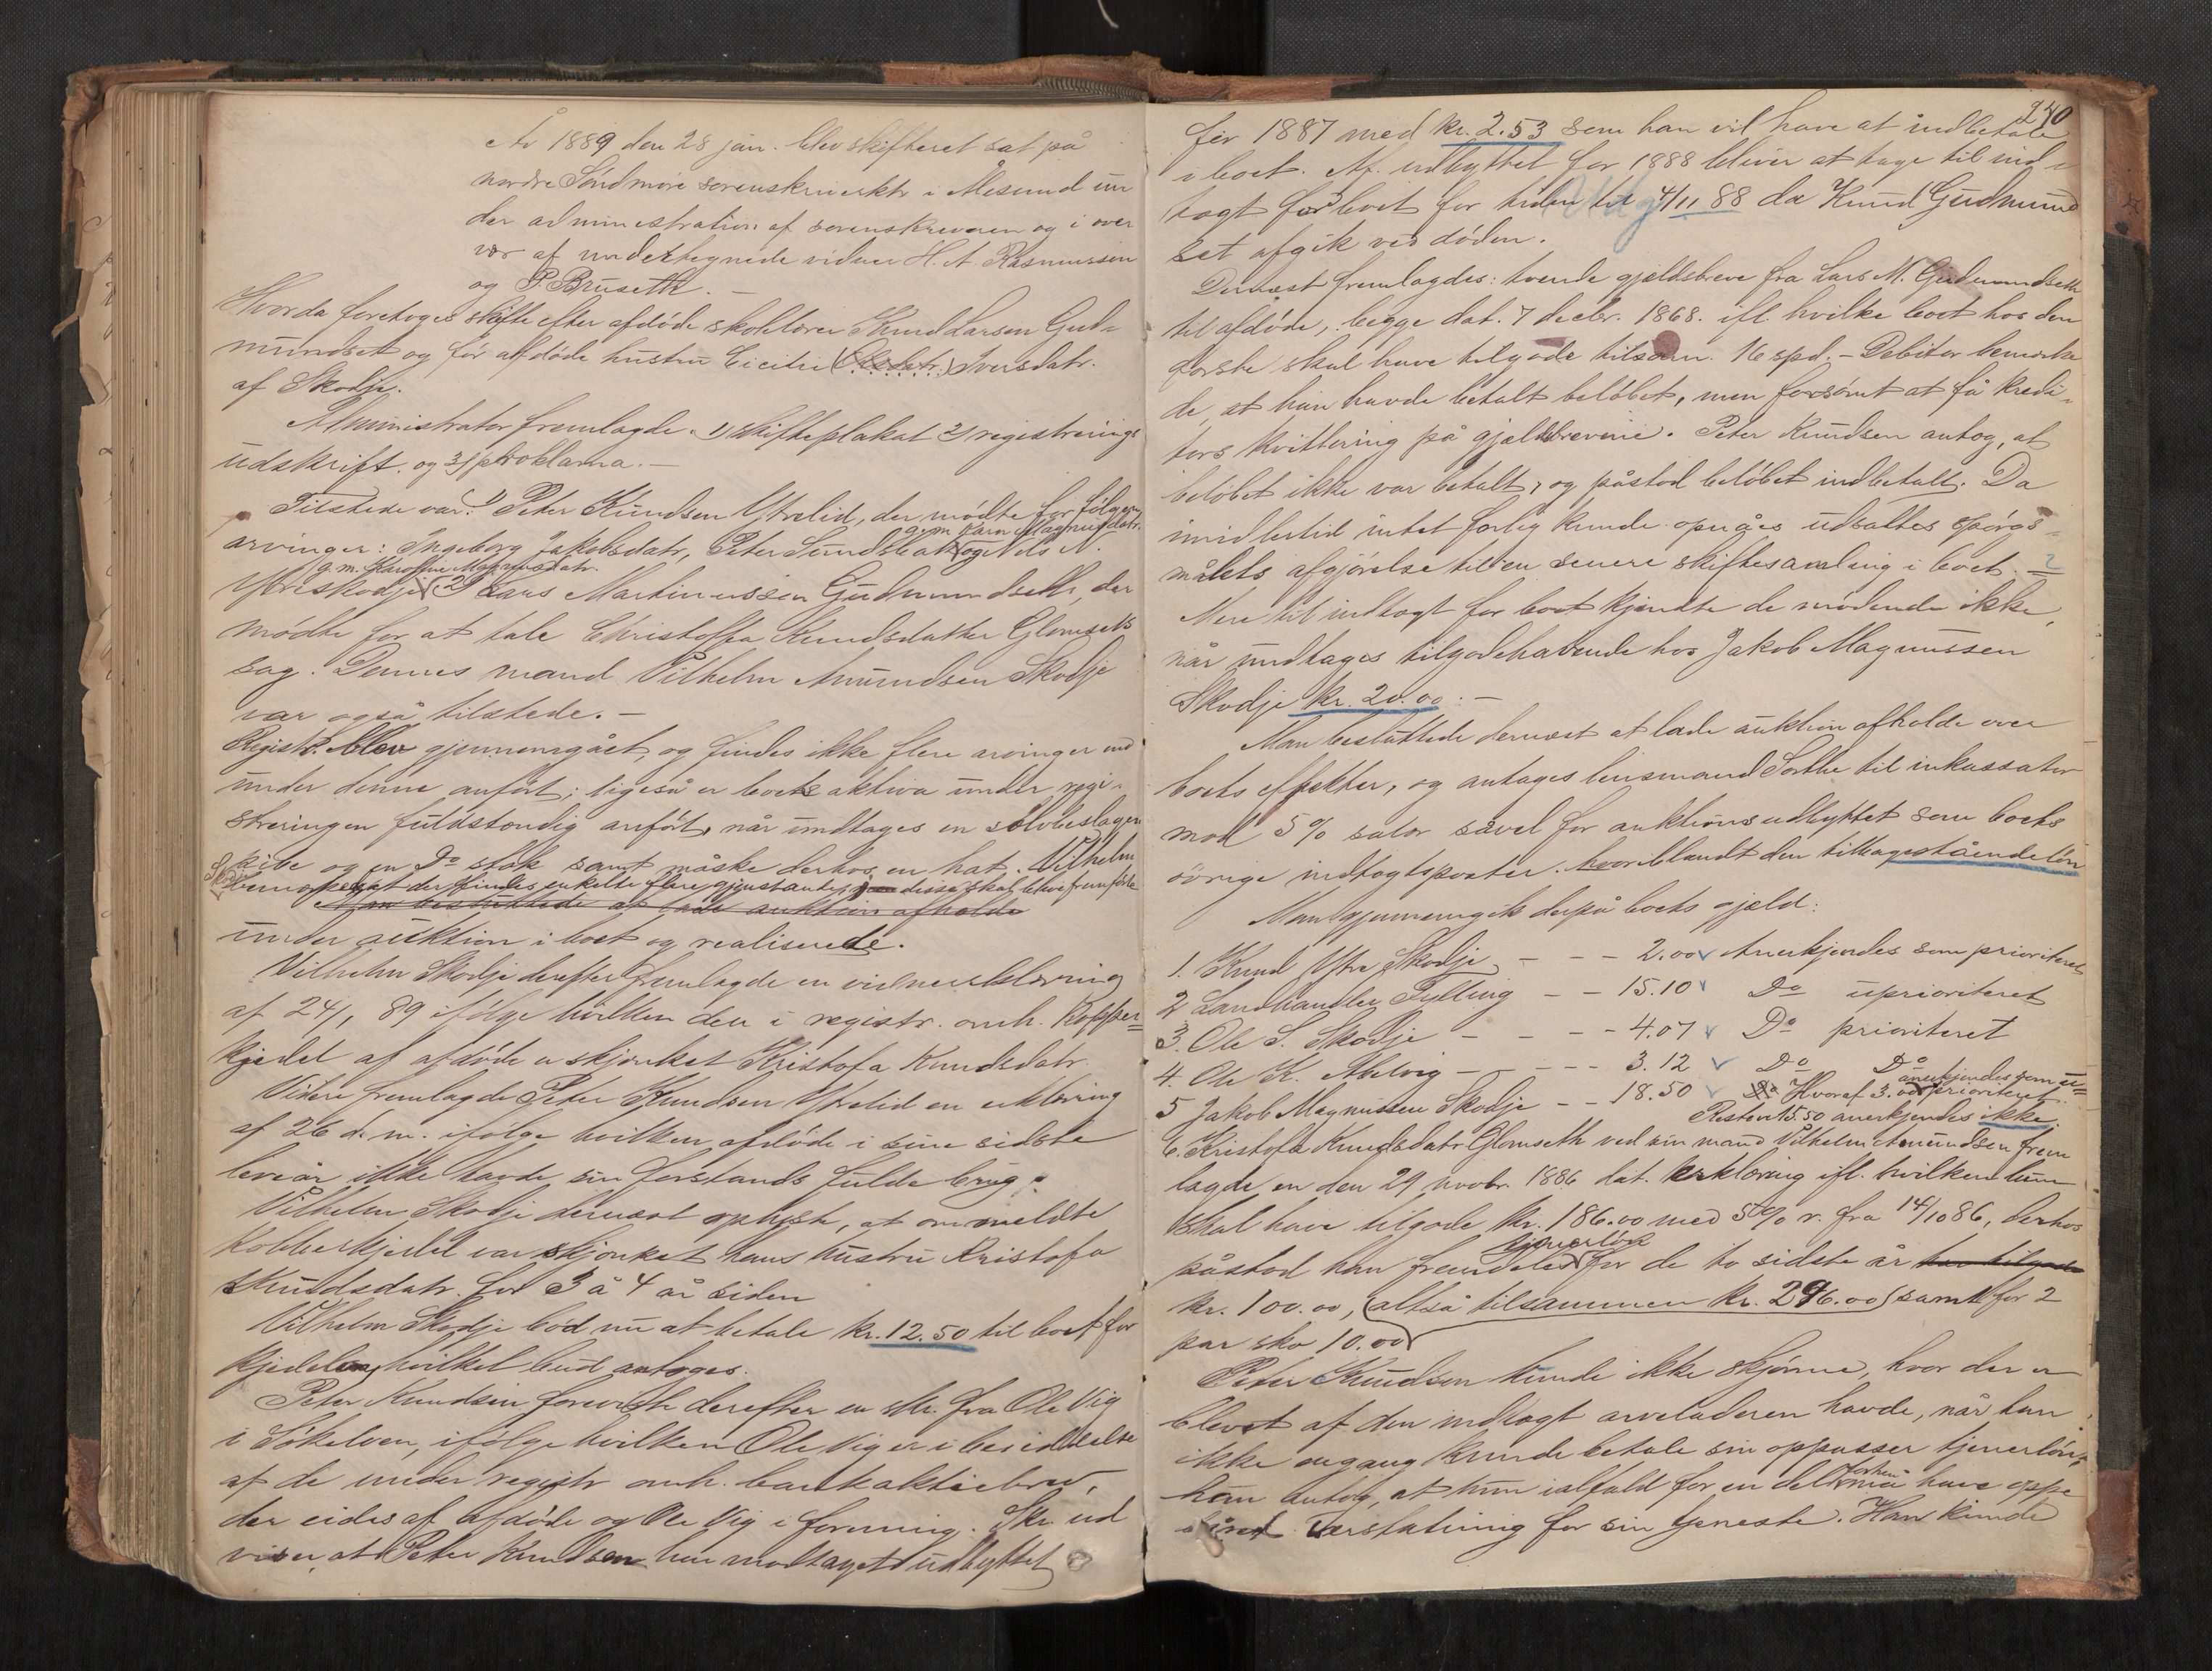 År 1889 den 28 jan. blev skifteret sat på
nordre Söndmöre sorenskriverktr i Ålesund un
der administration af sorenskriveren og i over
vær af undertegnede vidner H. A. Rasmussen
og P. Bruseth. —
Hvorda foretoges skifte efter afdöde skolelærer Knud Larsen Gud-
mundset og för afdöde hustru Cicilie (Olsdatr.) Iversdatr.
af Skodje.
Administrator fremlagde 1) skifteplakat 2) registrerings
udskrift. og 3) proklama. —
Tilstede var: 1) Peter Knudsen Ytrelid, der mödte for fölgen
g. m. Karn Magnusdatr.
arvinger: Ingeborg Jakobsdatr, Peter Sundsbak og Nils N.
g. m. Karoline Magnusdatr.
Ytreskodje 2) Lars Martinussen Gudmundseth, der
mödte for at tale Christoffa Knudsdatter Glomsets
sag. Dennes mand Vilhelm Amundsen Skodje
var også tilstede. —
Registr. blev gjennemgået, og findes ikke flere arvinger end
under denne anfört; ligeså er boets aktiva under regi-
streringen fuldstændig anfört, når undtages en sölvbeslagen
pibe og en Do stok samt måske derhos en hat. Vilhelm
Skodje bemærket at der findes enkelte flere gjenstande, disse skal blive fremförte
Man besluttede at lade auktion afholde
under auktion i boet og realiserede.
Vilhelm Skodje derefter fremlagde en vidneerklæring
af 24/1 89 ifölge hvilken den i registr. omh. Kopper=
kjedel af afdöde er skjænket Kristofa Knudsdatr.
Videre fremlagde Peter Knudsen Ytrelid en erklæring
af 26 d. m. ifölge hvilken afdöde i sine sidste
leveår ikke havde sin forstands fulde brug.
Vilhelm Skodje dernæst oplyste, at ommeldte
Kobberkjedel var skjænket hans hustru Kristofa
Knudsdatr. for 3 à 4 år siden
Vilhelm Skodje böd nu at betale kr. 12.50 til boet for
kjedelen, hvilket bud antoges.
Peter Knudsen foreviste derefter en skr. fra Ole Vig
i Sökelven, ifölge hvilken Ole Vig er i besiddelse
af de under registr omh. bankaktiebrev,
der eides af afdöde og Ole Vig i forening. Skr. ud
viser, at Peter Knudsen har modtaget udbyttet
240
for 1887 med kr. 2.53 som han vil have at indbetale
i boet. Af udbyttet for 1888 bliver at tage til ind-
tægt for boet for tiden til 4/11 88 da Knud Gudmund
set afgik ved döden.
Dernæst fremlagdes: tvende gjældsbreve fra Lars M. Gudmundseth
til afdöde, begge dat. 7 decbr. 1868. ifl. hvilke boet hos den
förste skal have tilgode tilsam. 16 spd. — Debitor bemærke
de, at han havde betalt belöbet, men forsömt at få kredi-
tors kvittering på gjældsbrevene. Peter Knudsen antog, at
belöbet ikke var betalt, og påstod belöbet indbetalt. Da
imidlertid intet forlig kunde opnåes udsattes spörgs-
målets afgjörelse til en senere skiftesamling i boet. ?
Mere til indtægt for boet kjendte de mödende ikke,
når undtages tilgodehavende hos Jakob Magnussen
Skodje kr. 20.00. —
Man besluttede dernæst at lade auktion afholde over
boets effekter, og antages lensmand Sorthe til inkassator
mod 5 % salær såvel for auktionsudbyttet som boets
övrige indtægtsposter. hvoriblandt den tilbagestående lön
Man gjennemgik derpå boets gjæld:
1. Knud Ytre Skodje — — — 2.00 Anerkjendes som prioriteret
2 Landhandler Fylling — — 15.10 Do uprioriteret
3. Ole S. Skodje — — — 4.07 Do prioriteret
4. Ole K. Abelvig — — — 3.12 Do Do
5 Jakob Magnussen Skodje — — 18.50 Do Hvoraf 3.00 anerkjendes som u= prioriteret.
Resten 15.50 anerkjendes ikke.
6. Kristofa Knudsdatr Glomseth ved sin mand Vilhelm Amundsen frem
lagde en den 29 novbr. 1886 dat. erklæring ifl. hvilken hun
skal have tilgode kr. 186.00 med 5 % r. fra 14/10 86, derhos
påstod han fremdeles tjenerlön for de to sidste år har tilgode
kr. 100.00, (altså tilsammen kr. 296.00) samt for 2
par sko 10.00
Peter Knudsen kunde ikke skjönne, hvor der er
blevet af den indtægt arveladeren havde, når han
ikke engang kunde betale sin oppasser tjenerlön,
han antog, at hun ialfald for en del heraf må have oppe
båret erstatning for sin tjeneste. Han kunde